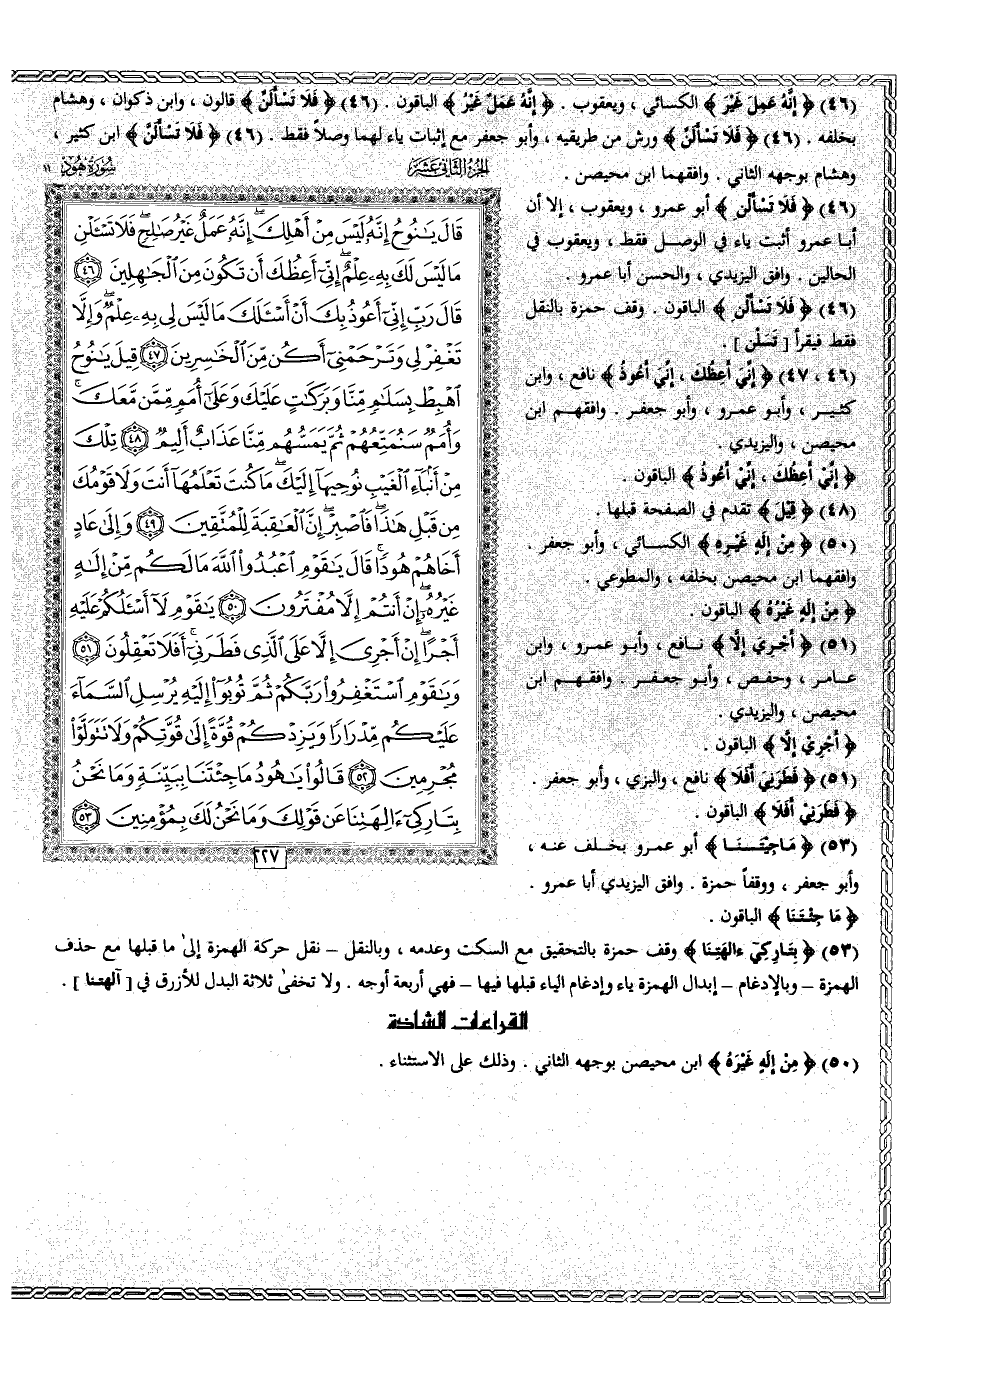 (٤٦) ﴿ إِنَّهُ عَمِلَ غَيْرَ ﴾ الكسائي ، ويعقوب . ﴿ إِنَّهُ عَمَلٌ غَيْرُ ﴾ الباقون . (٤٦) ﴿ فَلَا تَسْأَلَنِّ ﴾ قالون ، وابن ذكوان ، وهشام
بخلفه . (٤٦) ﴿ فَلَا تَسْأَلَنِّ ﴾ ورش من طريقيه ، وأبو جعفر مع إثبات ياء لهما وصلاً فقط . (٤٦) ﴿ فَلَا تَسْأَلَنَّ ﴾ ابن كثير ،
وهشام بوجهه الثاني . وافقهما ابن محيصن .
(٤٦) ﴿ فَلَا تَسْأَلْنِ ﴾ أبو عمرو ، ويعقوب ، إلا أن
أبا عمرو أثبت ياء في الوصل فقط ، ويعقوب في
الحالين . وافق اليزيدي ، والحسن أبا عمرو .
(٤٦) ﴿ فَلَا تَسْأَلْنِ ﴾ الباقون . وقف حمزة بالنقل
فقط فيقرأ [ تَسَلْنِ ] .
(٤٦ ، ٤٧) ﴿ إِنِّيَ أَعِظُكَ ، إِنِّيَ أَعُوذُ ﴾ نافع ، وابن
كثير ، وأبو عمرو ، وأبو جعفر . وافقهم ابن
محيصن ، واليزيدي .
﴿ إِنِّيْ أَعِظُكَ ، إِنِّيْ أَعُوذُ ﴾ الباقون .
(٤٨) ﴿ قِيْلَ ﴾ تقدم في الصفحة قبلها .
(٥٠) ﴿ مِنْ إِلَهٍ غَيْرِهِ ﴾ الكسائي ، وأبو جعفر .
وافقهما ابن محيصن بخلفه ، والمطوعي .
﴿ مِنْ إِلَهٍ غَيْرُهُ ﴾ الباقون .
(٥١) ﴿ أَجْرِيَ إِلَّا ﴾ نافع ، وأبو عمرو ، وابن
عامر ، وحفص ، وأبو جعفر . وافقهم ابن
محيصن ، واليزيدي .
﴿ أَجْرِيْ إِلَّا ﴾ الباقون .
(٥١) ﴿ فَطَرَنِيَ أَفَلَا ﴾ نافع ، والبزي ، وأبو جعفر .
﴿ فَطَرَنِيْ أَفَلَا ﴾ الباقون .
(٥٣) ﴿ مَاجِيْتَنَا ﴾ أبو عمرو بخلف عنه ،
وأبو جعفر ، ووقفاً حمزة . وافق اليزيدي أبا عمرو .
﴿ مَا جِئْتَنَا ﴾ الباقون .
الجزء الثاني عشر
سورة هود ١١
قَالَ يَٰنُوحُ إِنَّهُۥ لَيْسَ مِنْ أَهْلِكَ ۖ إِنَّهُۥ عَمَلٌ غَيْرُ صَٰلِحٍ ۖ فَلَا تَسْـَٔلْنِ
مَا لَيْسَ لَكَ بِهِۦ عِلْمٌ ۖ إِنِّىٓ أَعِظُكَ أَن تَكُونَ مِنَ ٱلْجَٰهِلِينَ ٤٦
قَالَ رَبِّ إِنِّىٓ أَعُوذُ بِكَ أَنْ أَسْـَٔلَكَ مَا لَيْسَ لِى بِهِۦ عِلْمٌ ۖ وَإِلَّا
تَغْفِرْ لِى وَتَرْحَمْنِىٓ أَكُن مِّنَ ٱلْخَٰسِرِينَ ٤٧ قِيلَ يَٰنُوحُ
ٱهْبِطْ بِسَلَٰمٍ مِّنَّا وَبَرَكَٰتٍ عَلَيْكَ وَعَلَىٰٓ أُمَمٍ مِّمَّن مَّعَكَ ۚ
وَأُمَمٌ سَنُمَتِّعُهُمْ ثُمَّ يَمَسُّهُم مِّنَّا عَذَابٌ أَلِيمٌ ٤٨ تِلْكَ
مِنْ أَنۢبَآءِ ٱلْغَيْبِ نُوحِيهَآ إِلَيْكَ ۖ مَا كُنتَ تَعْلَمُهَآ أَنتَ وَلَا قَوْمُكَ
مِن قَبْلِ هَٰذَا ۖ فَٱصْبِرْ ۖ إِنَّ ٱلْعَٰقِبَةَ لِلْمُتَّقِينَ ٤٩ وَإِلَىٰ عَادٍ
أَخَاهُمْ هُودًا ۚ قَالَ يَٰقَوْمِ ٱعْبُدُوا۟ ٱللَّهَ مَا لَكُم مِّنْ إِلَٰهٍ
غَيْرُهُۥٓ ۖ إِنْ أَنتُمْ إِلَّا مُفْتَرُونَ ٥٠ يَٰقَوْمِ لَآ أَسْـَٔلُكُمْ عَلَيْهِ
أَجْرًا ۖ إِنْ أَجْرِىَ إِلَّا عَلَى ٱلَّذِى فَطَرَنِىٓ ۚ أَفَلَا تَعْقِلُونَ ٥١
وَيَٰقَوْمِ ٱسْتَغْفِرُوا۟ رَبَّكُمْ ثُمَّ تُوبُوٓا۟ إِلَيْهِ يُرْسِلِ ٱلسَّمَآءَ
عَلَيْكُم مِّدْرَارًا وَيَزِدْكُمْ قُوَّةً إِلَىٰ قُوَّتِكُمْ وَلَا تَتَوَلَّوْا۟
مُجْرِمِينَ ٥٢ قَالُوا۟ يَٰهُودُ مَا جِئْتَنَا بِبَيِّنَةٍ وَمَا نَحْنُ
بِتَارِكِىٓ ءَالِهَتِنَا عَن قَوْلِكَ وَمَا نَحْنُ لَكَ بِمُؤْمِنِينَ ٥٣
٢٢٧
(٥٣) ﴿ بِتَارِكِيٓ ءَالِهَتِنَا ﴾ وقف حمزة بالتحقيق مع السكت وعدمه ، وبالنقل – نقل حركة الهمزة إلىٰ ما قبلها مع حذف
الهمزة – وبالإدغام – إبدال الهمزة ياء وإدغام الياء قبلها فيها – فهي أربعة أوجه . ولا تخفىٰ ثلاثة البدل للأزرق في [ آلهتنا ] .
القراءات الشاذة
(٥٠) ﴿ مِنْ إِلَهٍ غَيْرَهُ ﴾ ابن محيصن بوجهه الثاني . وذلك على الاستثناء .